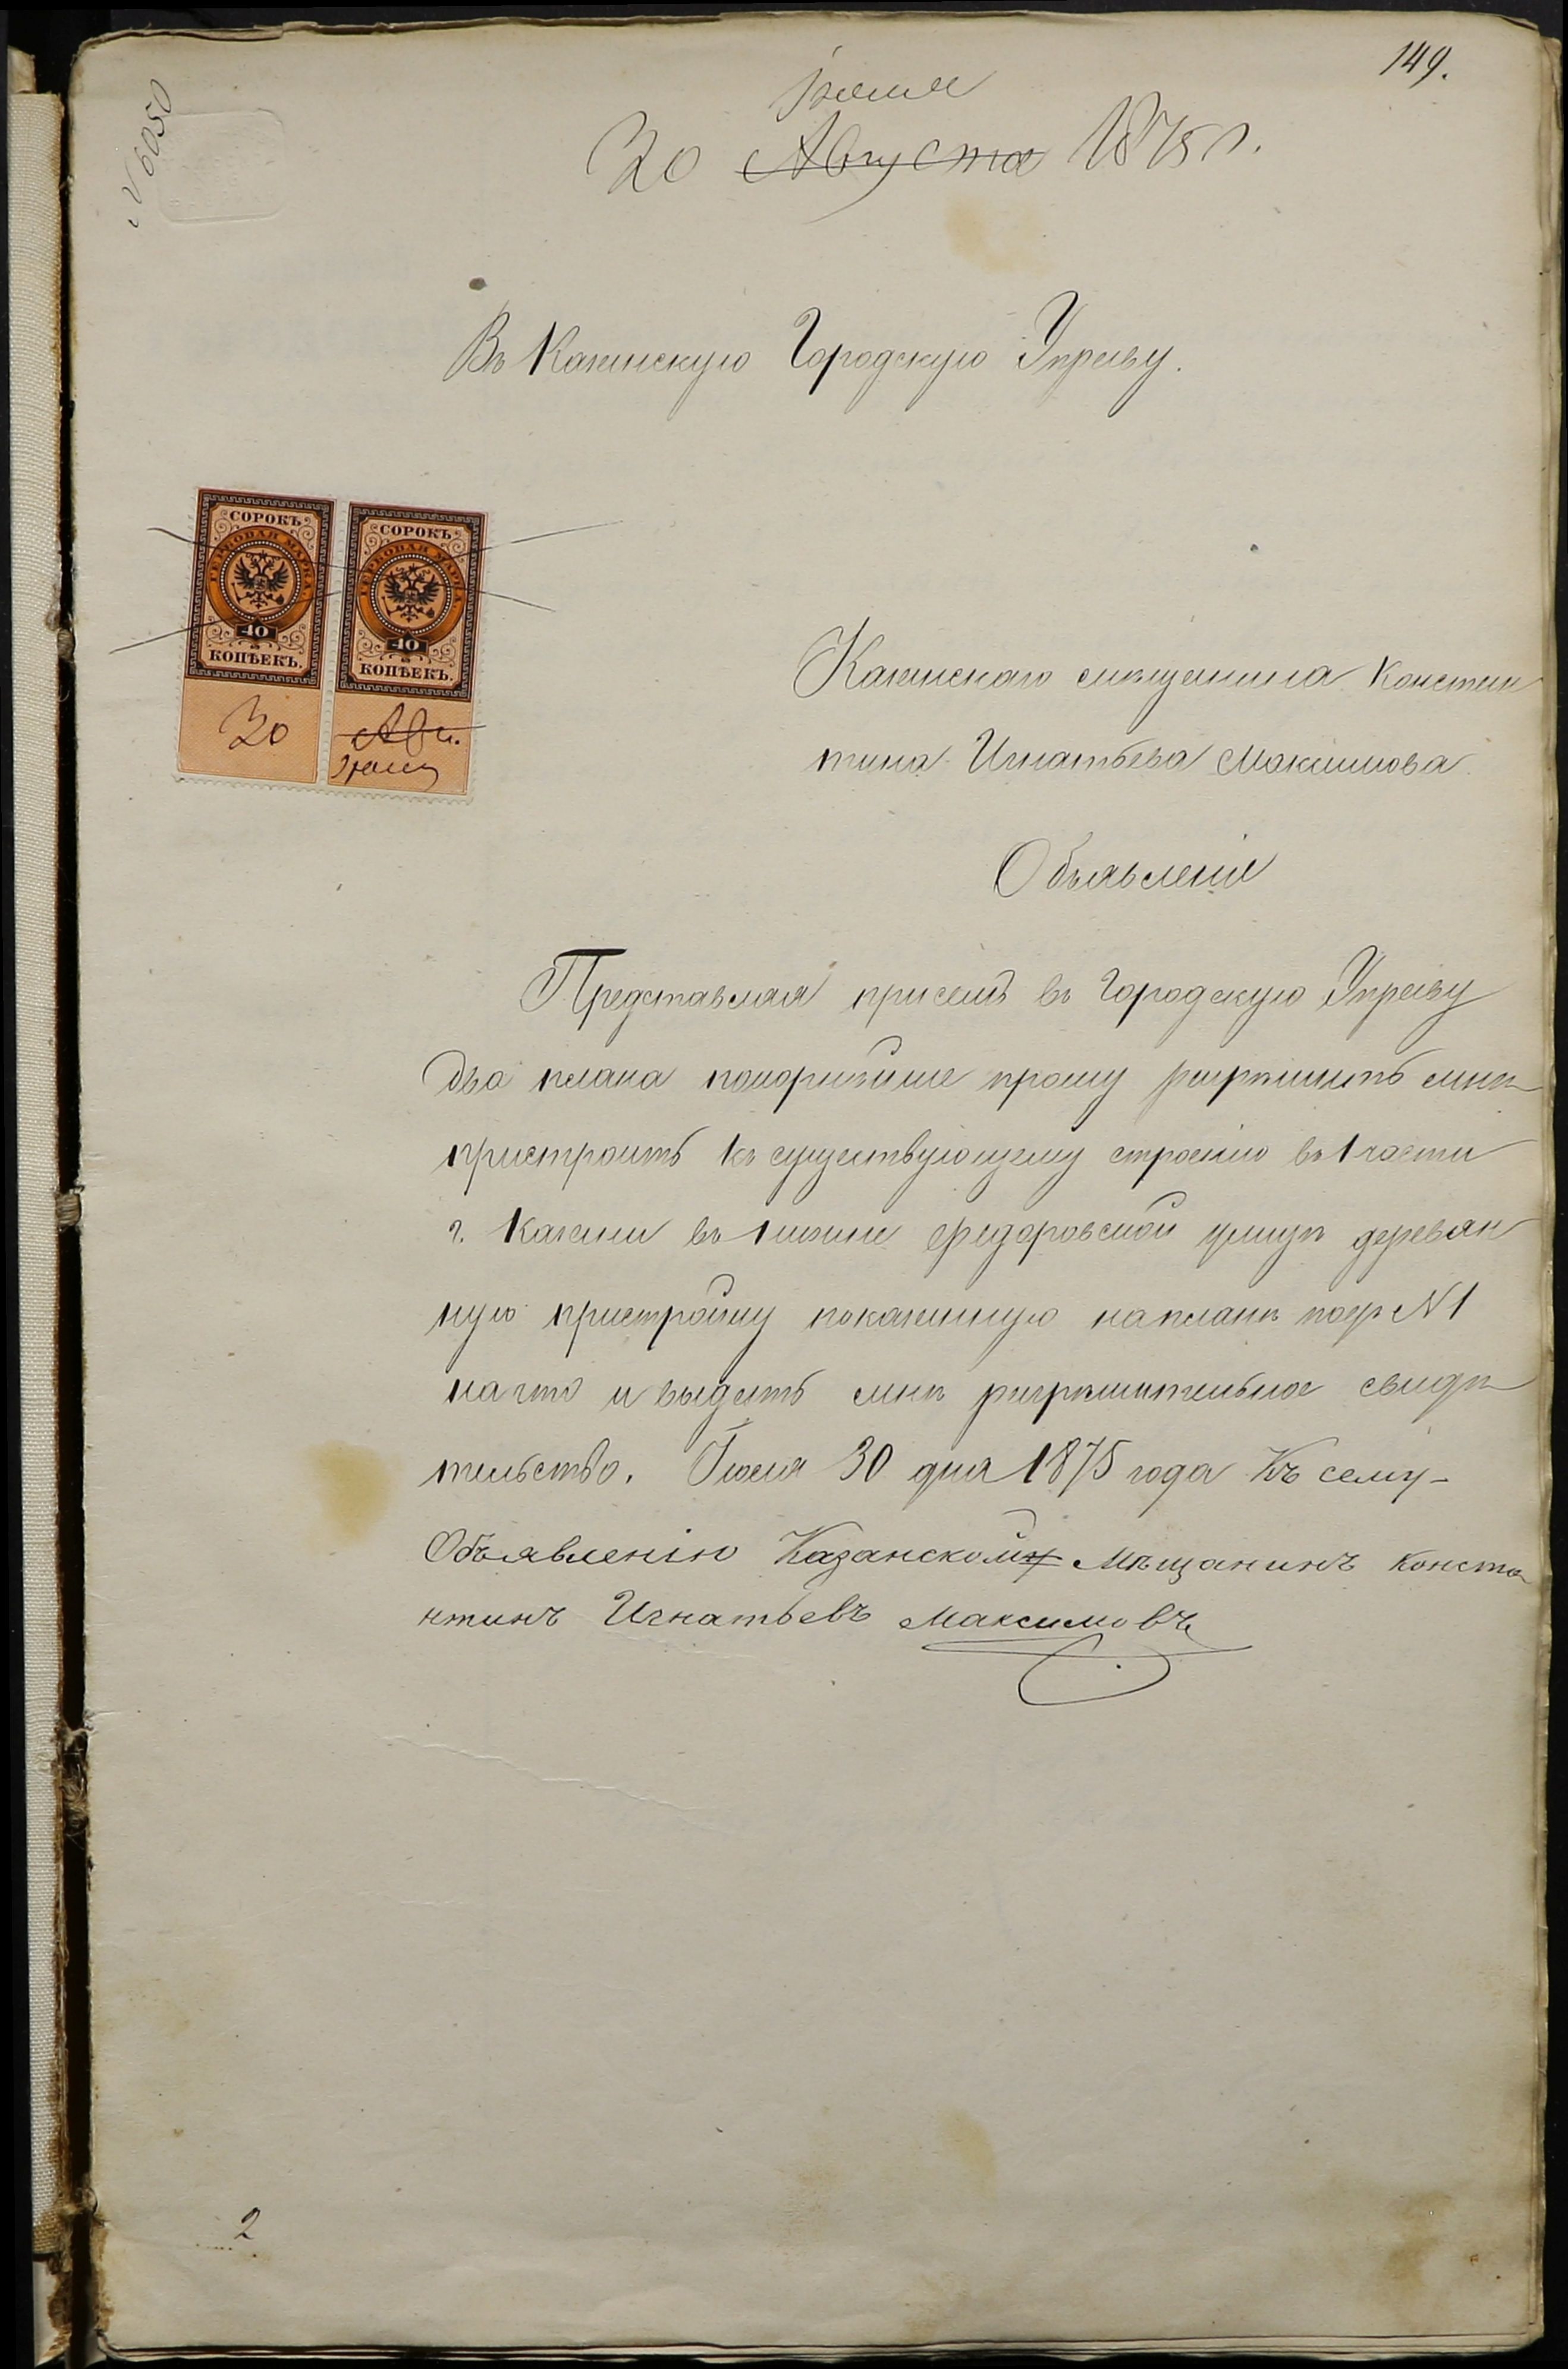 149.
№ 6050
Іюля
30 Августа 1875 г.
Въ Казанскую Городскую Управу.
СОРОКЪ
ГЕРБОВАЯ МАРКА
40
КОПѢЕКЪ.
30
СОРОКЪ
ГЕРБОВАЯ МАРКА
40
КОПѢЕКЪ.
Авг.
Іюля
Казанскаго мѣщанина Констан
тина Игнатьева Максимова
Объявленіе
Представляя при семъ въ Городскую Управу
два плана покорнѣйше прошу разрѣшить мнѣ
пристроить къ существующему строенію въ 1 части
г. Казани въ Федоровской улицѣ деревян
ную пристройку показанную на планѣ под № 1
на что и выдать мнѣ разрѣшительное свидѣ
тельство. Іюля 30 дня 1875 года Къ сему-
Объявленію Казанской Мѣщанинъ Конста
нтинъ Игнатьевъ Максимовъ
2